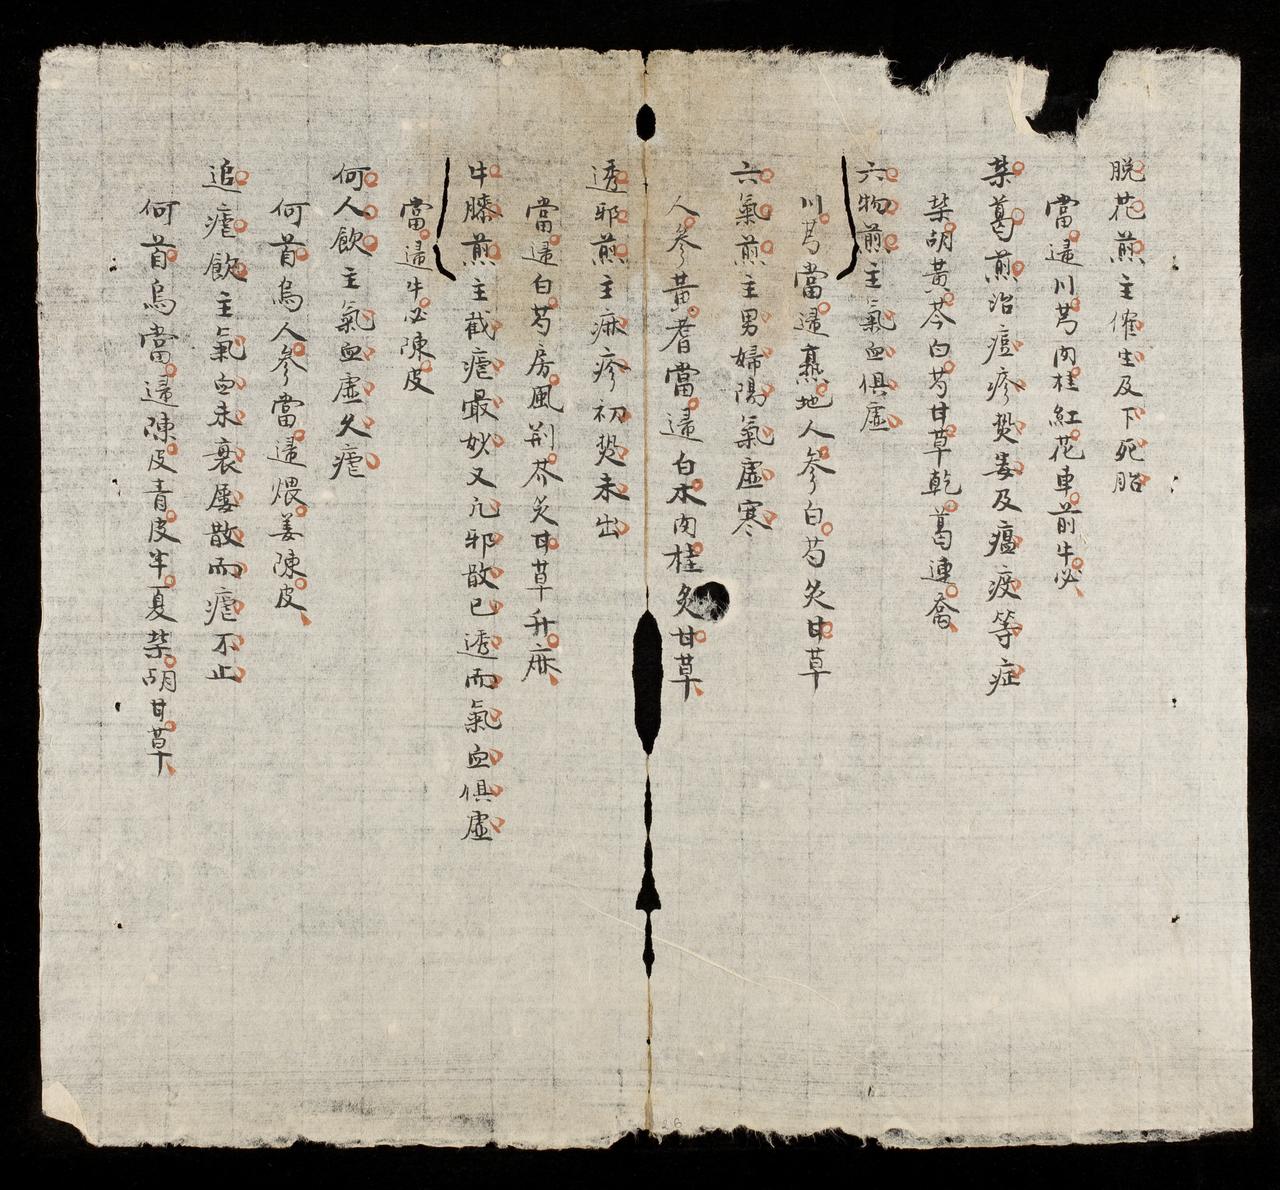 脱花煎主催生及下死胎
當歸川芎肉桂紅花車前牛必
柴葛煎治瘟疹熱毒及瘟疫等症
柴胡黃芩白芍甘草乾葛連喬
六物煎主氣血俱虛
川芎當歸熟地人參白芍炙甘草
六氣煎主男婦陽氣虛寒
人參黃耆當歸白朮肉桂炙甘草
透邪煎主痳疹初熱未出
當歸白芍房風荊芥炙甘草升痳
牛膝煎主截瘧最妙又凢邪散已透而氣血俱虛
當歸牛必陳皮
何人飲主氣血虛久瘧
何首烏人參當歸煨姜陳皮
追瘧飲主氣血未衰屡散而瘧不止
何首烏當歸陳皮青皮半夏柴胡甘草
26